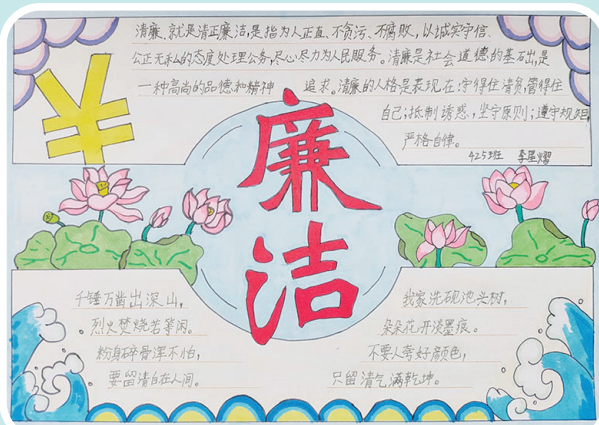 清廉,就是清正廉洁,是指为人正直、不贪污、不腐败,以诚实守信、
公正无私的态度处理公务,尽心尽力为人民服务。清廉是社会道德的基础,是
一种高尚的品德和精神追求。清廉的人格是表现在:守得住清贫,管得住
自己;抵制诱惑,坚守原则;遵守规矩,
严格自律。
425班 李星熠
¥
廉洁
千锤万凿出深山,
烈火焚烧若等闲。
粉身碎骨浑不怕,
要留清白在人间。
我家洗砚池头树,
朵朵花开淡墨痕。
不要人夸好颜色,
只留清气满乾坤。